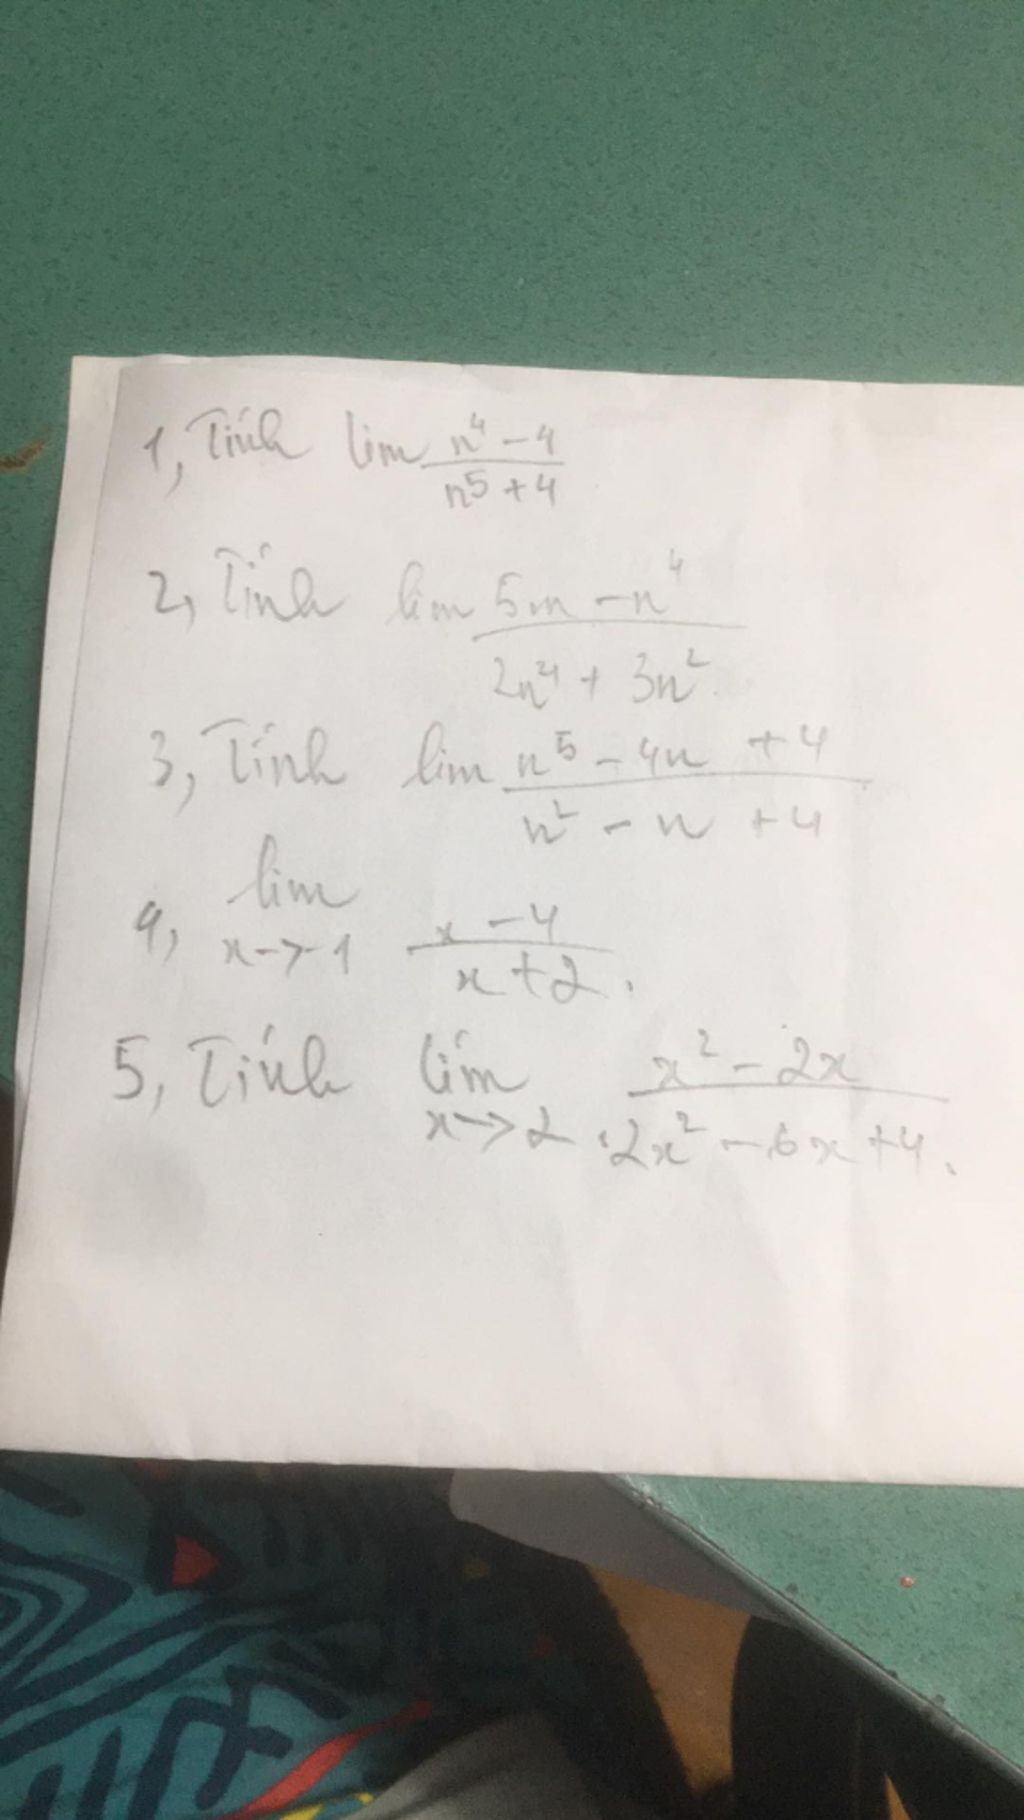 1, Tính lim (n⁴ - 4)/(n⁵ + 4)
2, Tính lim (5n - n⁴)/(2n⁴ + 3n²)
3, Tính lim (n⁵ - 4n + 4)/(n² - n + 4)
4, lim x->1 (x - 4)/(x + 2).
5, Tính lim x->2 (x² - 2x)/(2x² - 6x + 4).